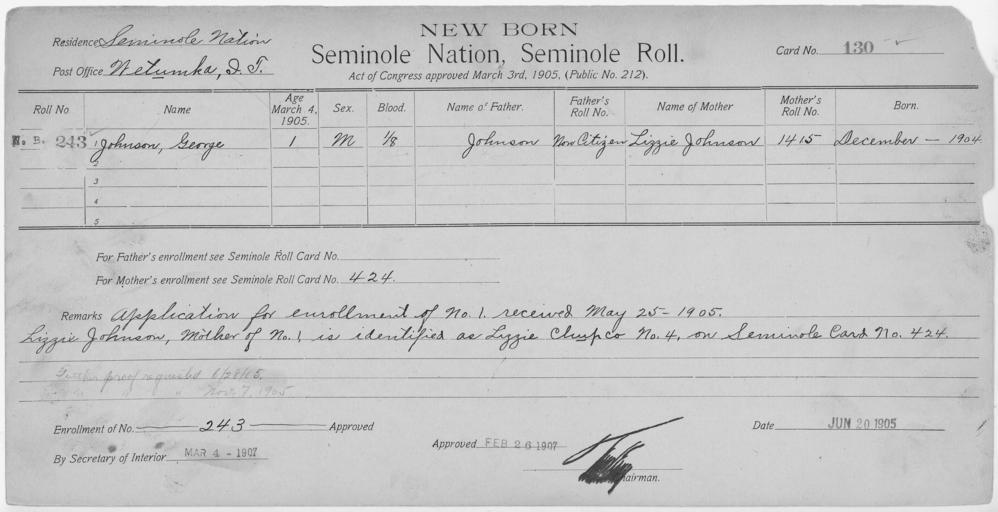 NEW BORN
Residence Seminole Nation
Seminole Nation, Seminole Roll.
Card No. 130
Post Office Wetumka, I. T.
Act of Congress approved March 3rd, 1905, (Public No. 212).
Roll No Name Age March 4, 1905. Sex. Blood. Name of Father. Father's Roll No. Name of Mother Mother's Roll No. Born.
N. B. 243 1 Johnson, George 1 M 1/8 Johnson Non Citizen Lizzie Johnson 1415 December — 1904
2
3
4
5
For Father's enrollment see Seminole Roll Card No.
For Mother's enrollment see Seminole Roll Card No. 424.
Remarks Application for enrollment of No. 1. received May 25 - 1905.
Lizzie Johnson, Mother of No. 1, is identified as Lizzie Chupco No. 4, on Seminole Card No. 424.
Further proof requested 6/28/05.
" " Nov. 7, 1905
Enrollment of No. 243 Approved
Date JUN 20 1905
Approved FEB 26 1907
By Secretary of Interior. MAR 4 - 1907
Chairman.